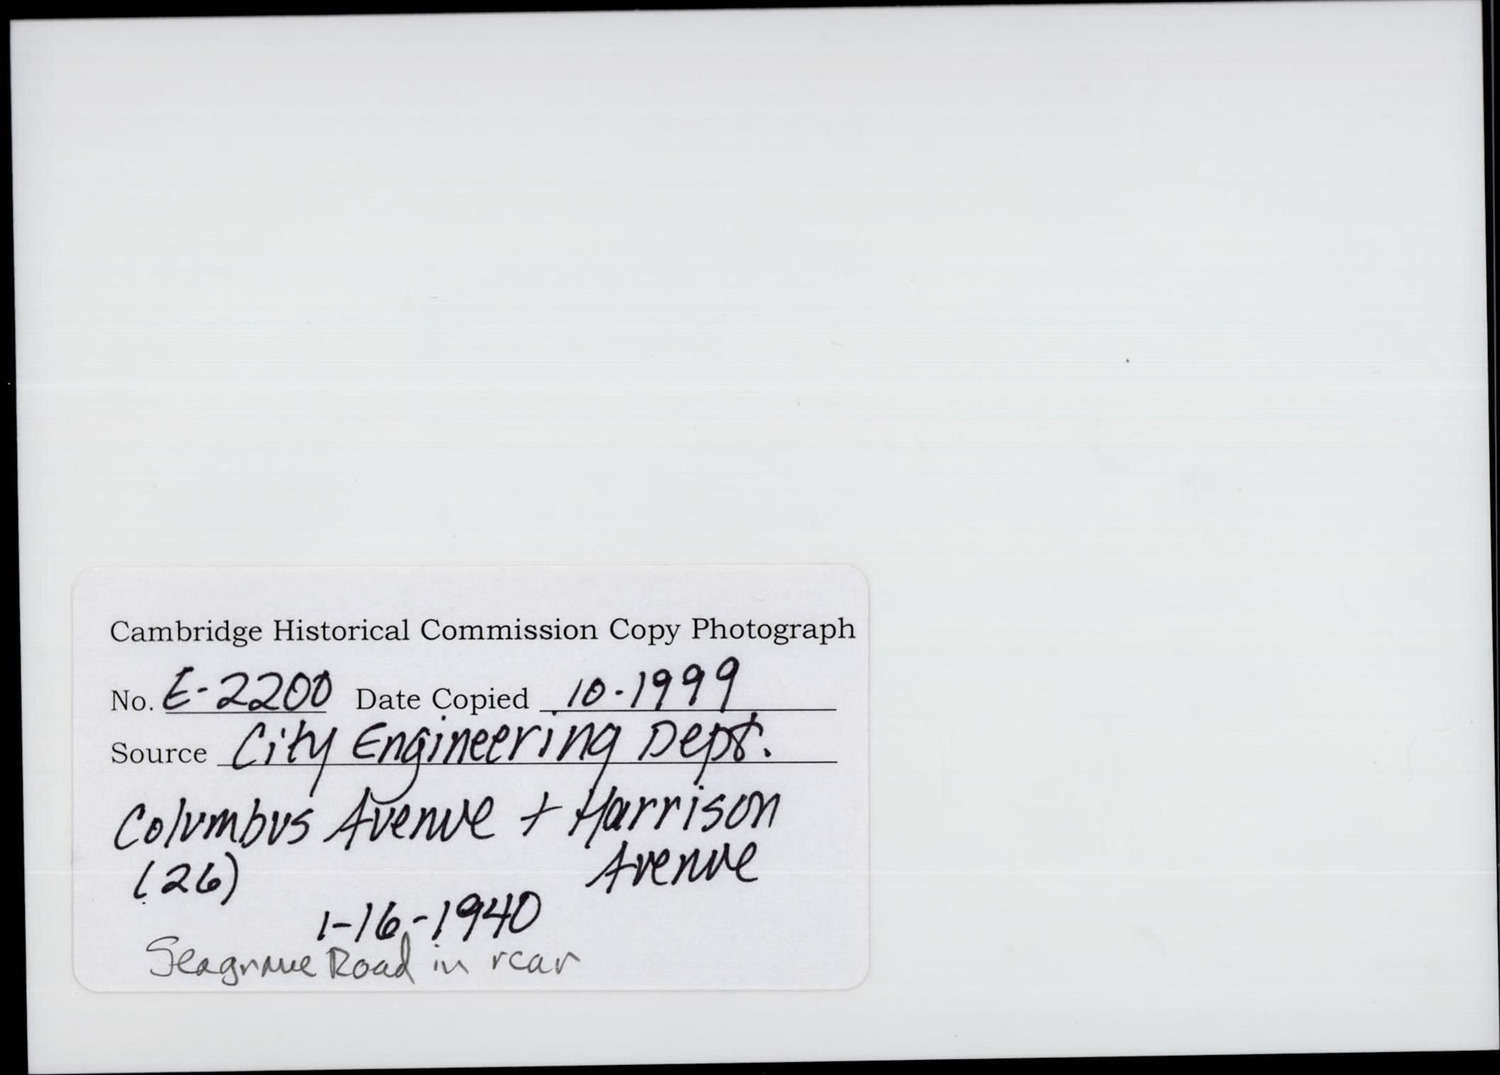 Cambridge Historical Commission Copy Photograph
No. E-2200 Date Copied 10-1999
Source City Engineering Dept.
Columbus Avenue + Harrison
Avenue
(26)
1-16-1940
Seagrave Road in rear